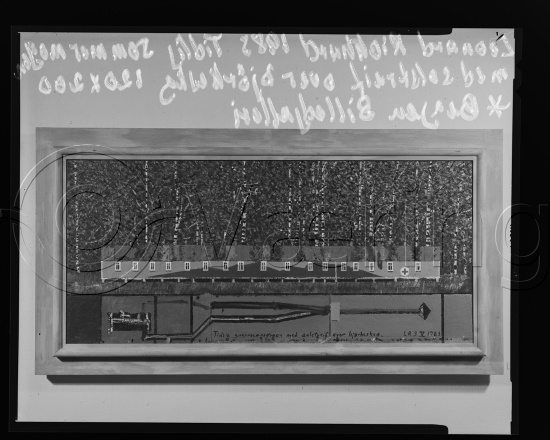 Leonard Rickhard 1983 Tidlig sommermorgen
med solstreif over bjørkeskog 120x200
* Bergen Billedgalleri
© O. Væring
Tidlig sommermorgen med solstreif over bjørkeskog